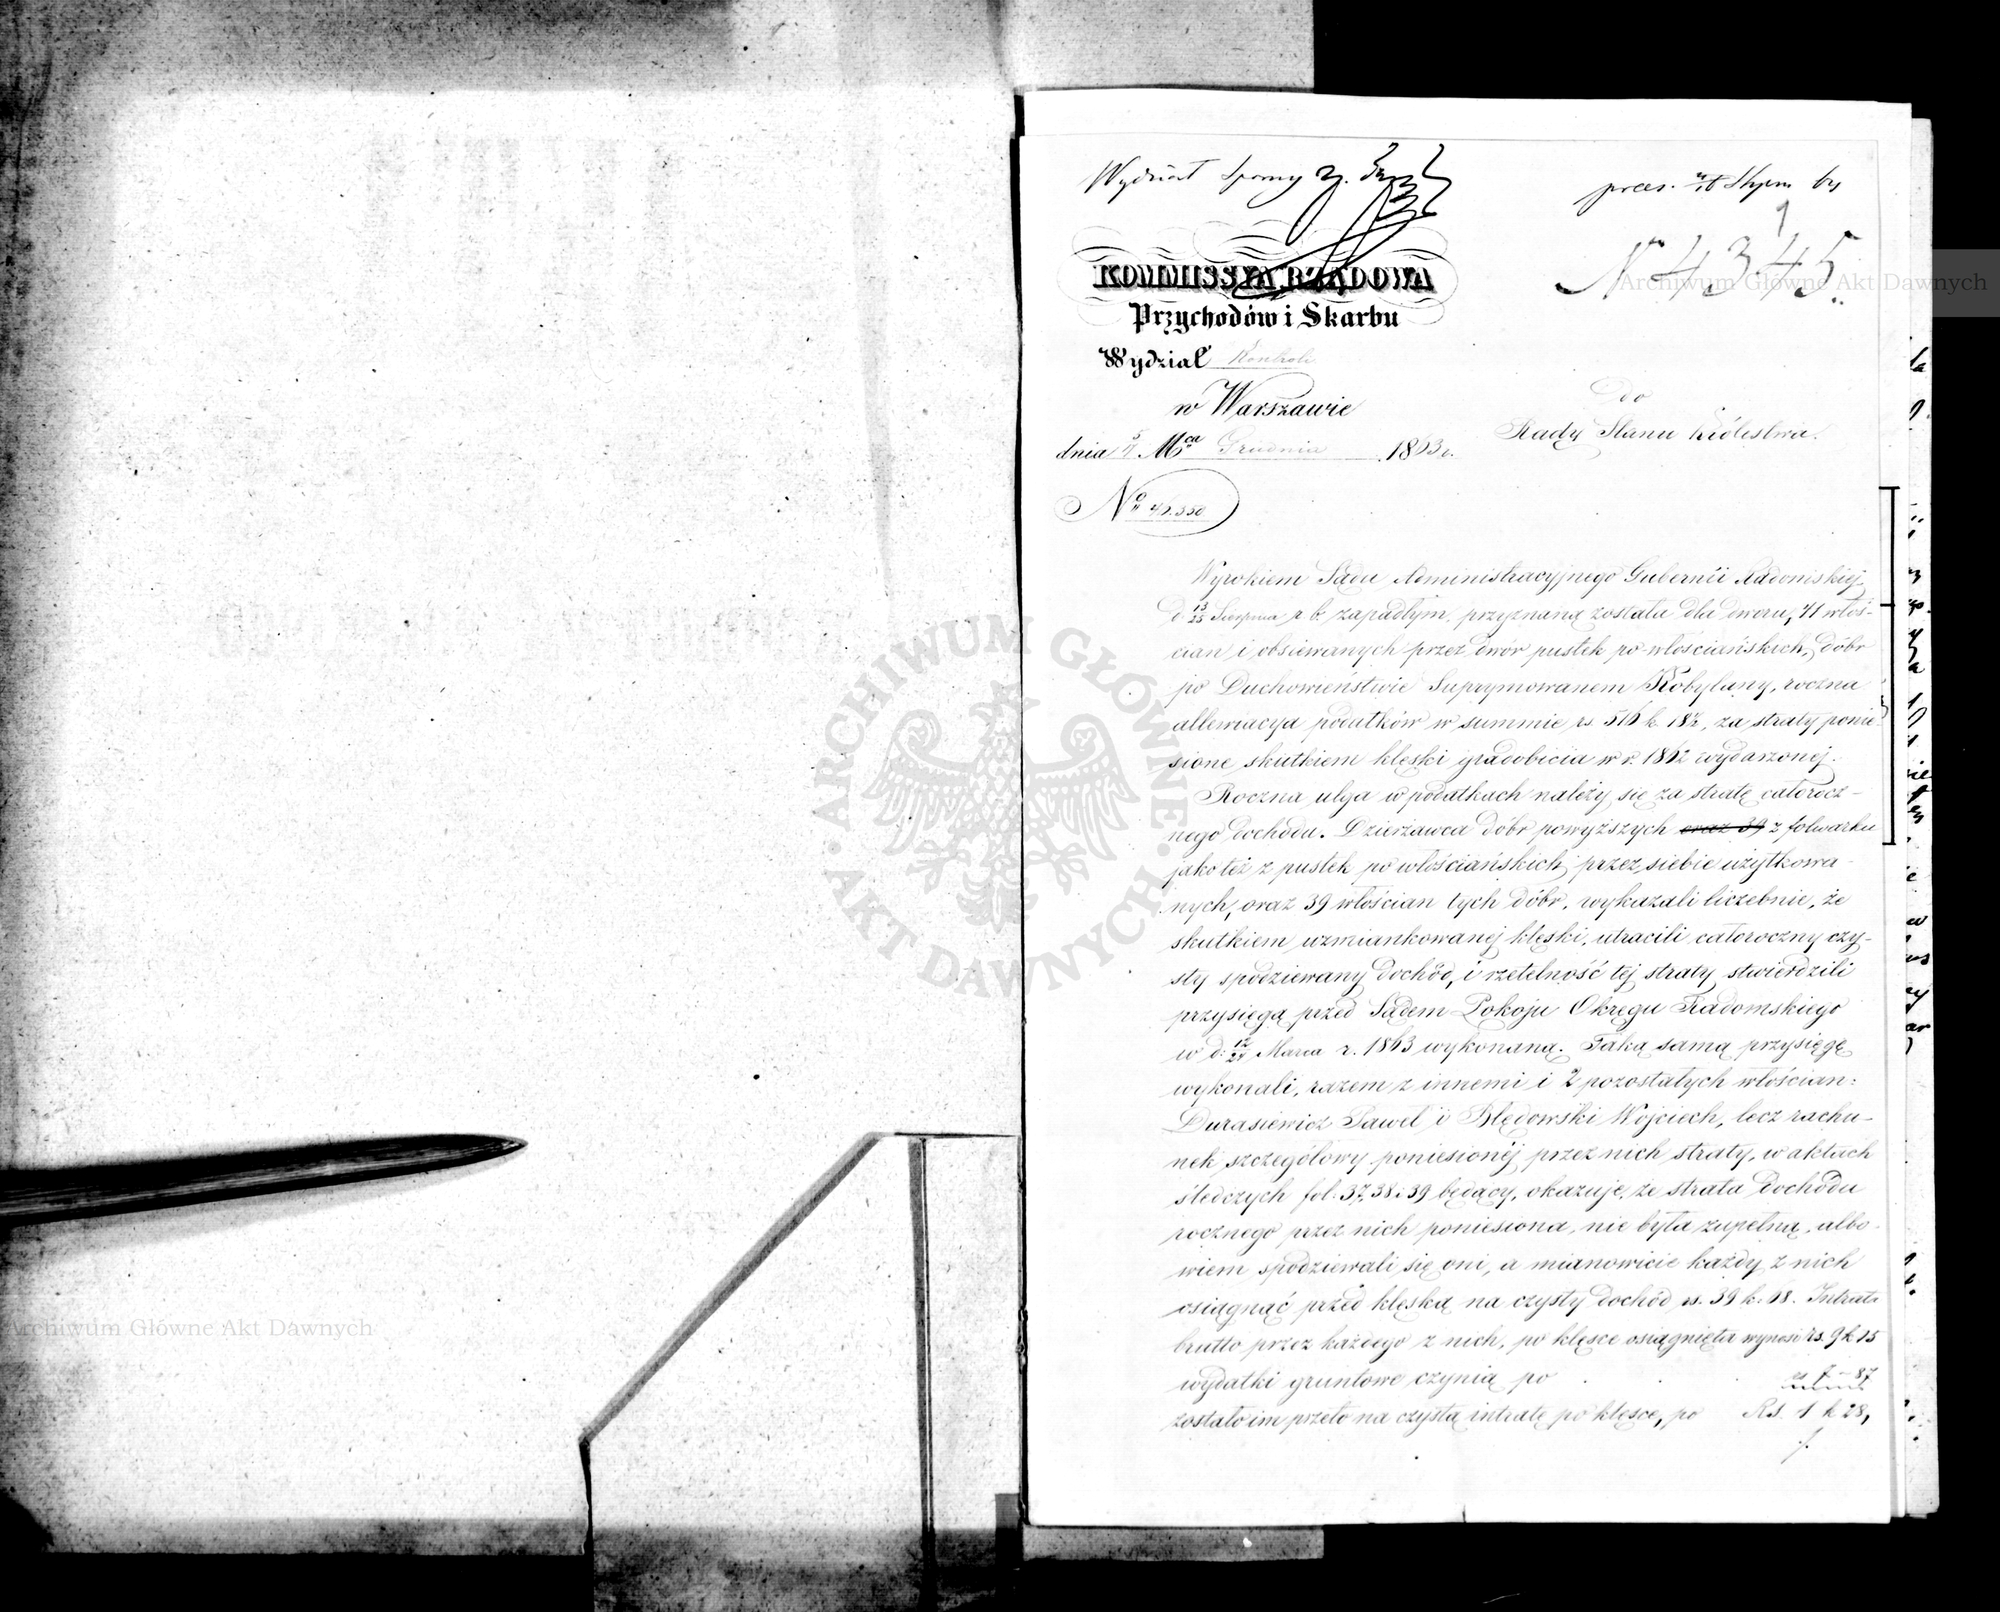 Wydział Sporny
prces. Stycz
1
N 4345
KOMMISSYA RZĄDOWA
Przychodów i Skarbu
Wydział Kontroli
w Warszawie
do
Rady Stanu Królestwa.
dnia Mca Grudnia 1863 r.
No
Wyrokiem Sądu Administracyjnego Gubernii Radomskiej
d. 13/25 Sierpnia r b. zapadłym, przyznaną została dla dworu, 41 włoś-
cian i obsiewanych przez dwór pustek po-włościańskich, dóbr
po Duchowieństwie Suprymowanem Kobylany, roczna
allewiacya podatków w summie rs. 516 k. 18½, za straty ponie-
sione skutkiem klęski gradobicia w r. 1862 wydarzonej.
Roczna ulga w podatkach należy się za stratę całorocz-
nego dochodu. Dzierżawca dóbr powyższych oraz 39 z folwarku
jako też z pustek po włościańskich, przez siebie użytkowa-
nych, oraz 39 włościan tych dóbr, wykazali liczebnie, że
skutkiem wzmiankowanej klęski, utracili całoroczny czy-
sty spodziewany dochód, i rzetelność tej straty stwierdzili
przysięgą przed Sądem Pokoju Okręgu Radomskiego
w d. 12/24 Marca r. 1863 wykonaną. Taką samą przysięgę
wykonali, razem z innemi i 2 pozostałych włościan:
Durasiewicz Paweł i Błędowski Wojciech, lecz rachu-
nek szczegółowy poniesionej przez nich straty, w aktach
śledczych fol. 37, 38 i 39 będący, okazuje, że strata dochodu
rocznego przez nich poniesiona, nie była zupełną, albo-
wiem spodziewali się oni, a mianowicie każdy z nich
osiągnąć przed klęską na czysty dochód rs. 39 k. 68. Intrata
brutto przez każdego z nich, po klęsce osiągnięta wynosi rs. 9 k 15
wydatki gruntowe czynią po . . . 7 – 87
zostało im przeto na czystą intratę po klęsce, po Rs. 1 k 28,
ARCHIWUM GŁÓWNE AKT DAWNYCH
Archiwum Główne Akt Dawnych
Archiwum Główne Akt Dawnych